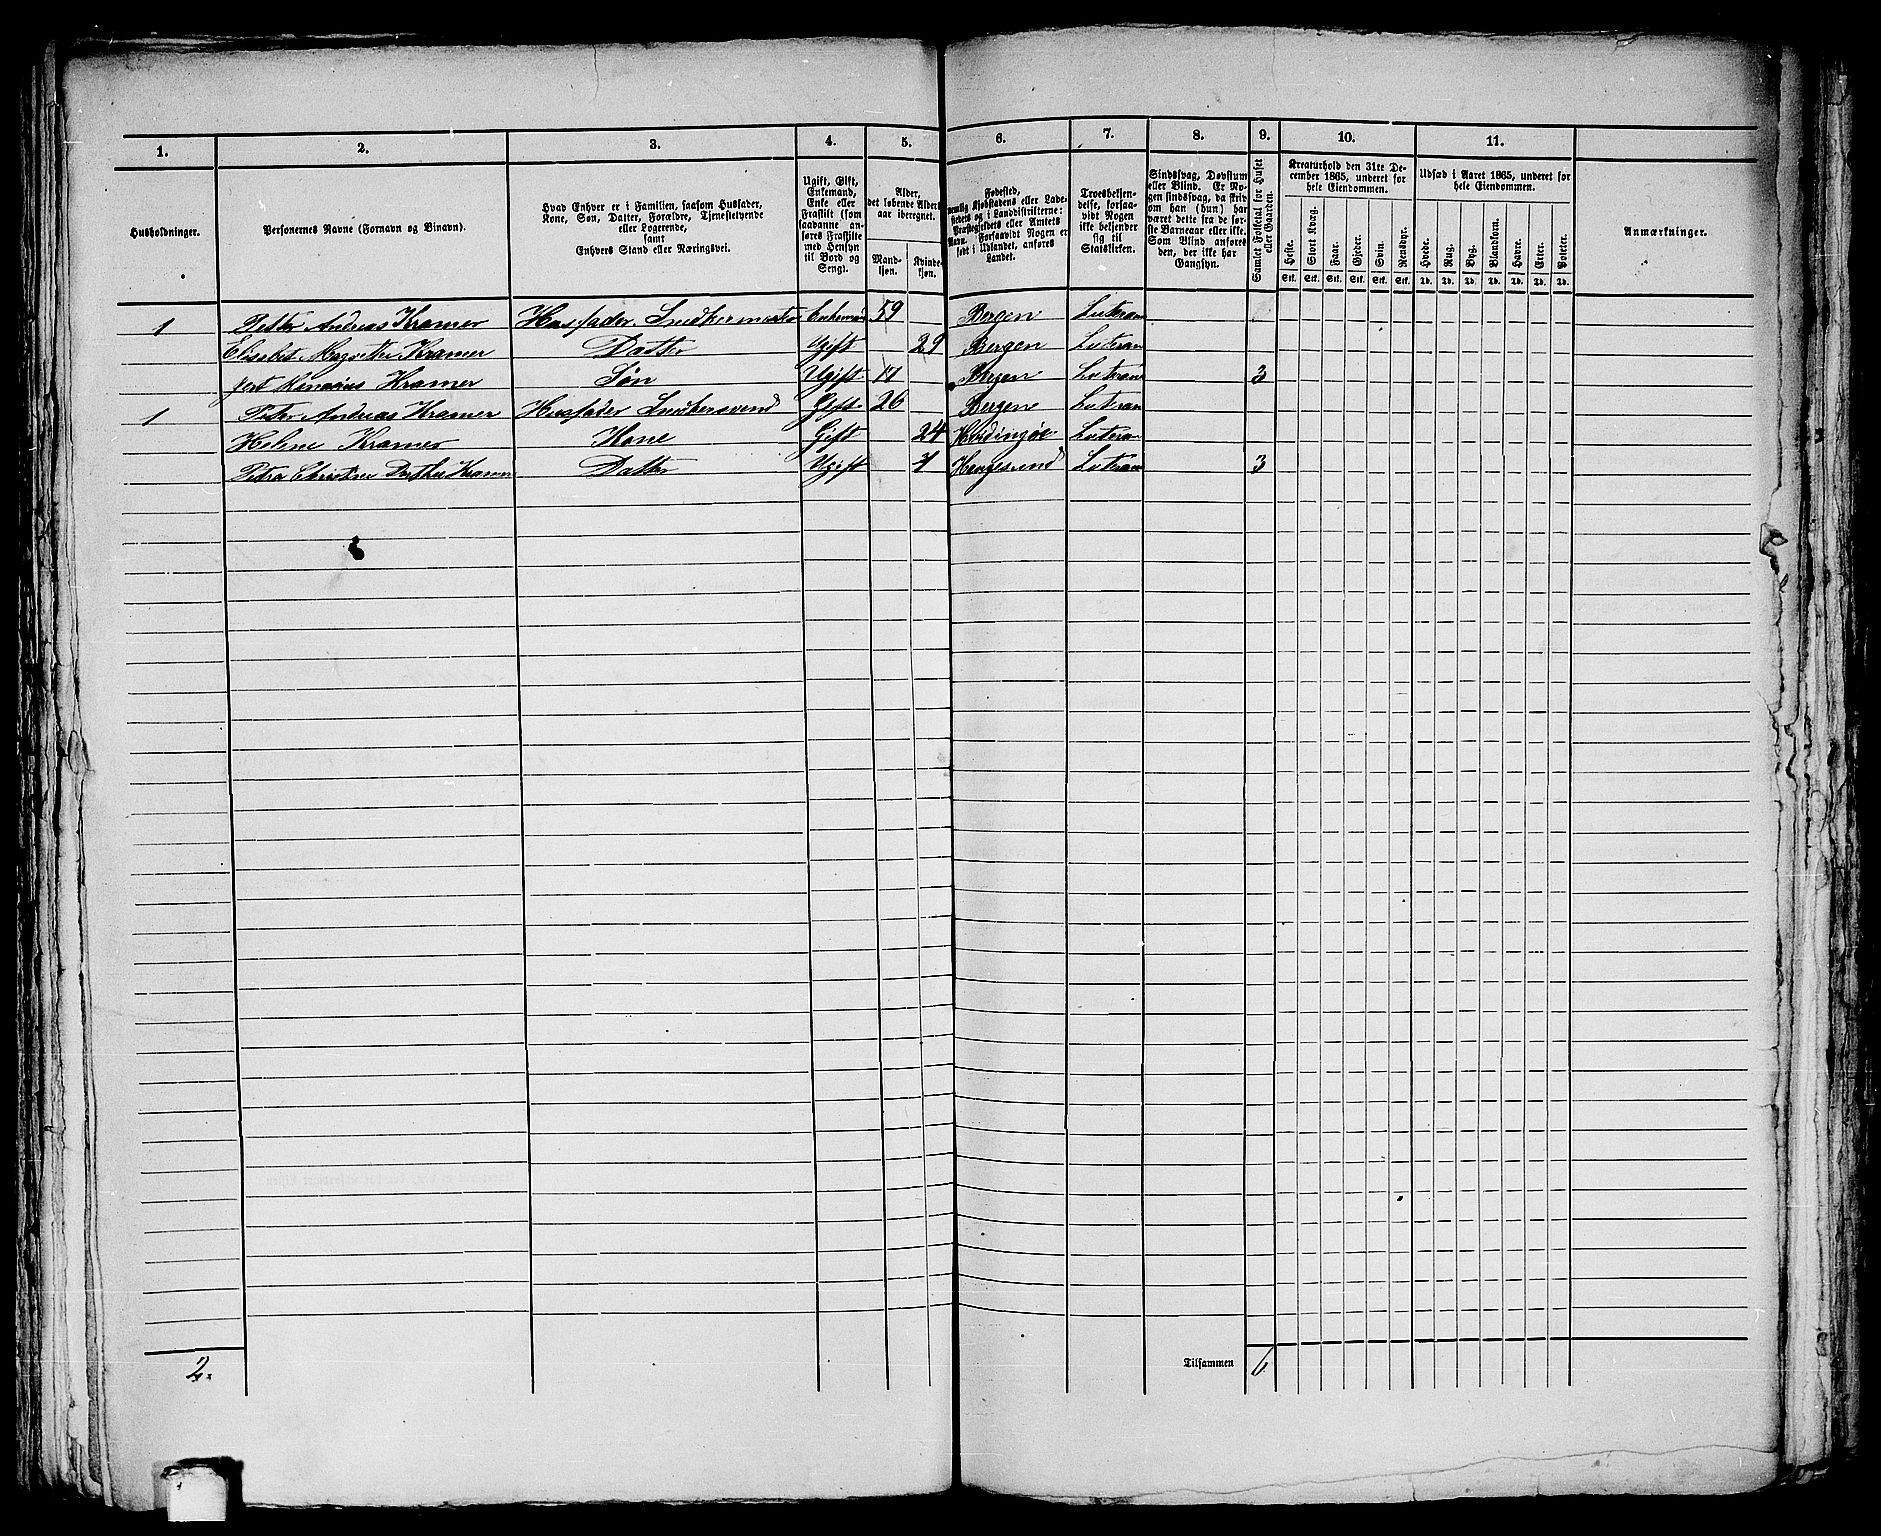 1. 2. 3. 4. 5. 6. 7. 8. 9. 10. 11.
Husholdninger.
Personernes Navne (Fornavn og Binavn).
Hvad Enhver er i Familien, saasom Husfader,
Kone, Søn, Datter, Forældre, Tjenestetyende
eller Logerende,
samt
Enhvers Stand eller Næringsvei.
Ugift, Gift,
Enkemand,
Enke eller
Fraskilt (som
saadanne an-
føres Fraskilte
med Hensyn
til Bord og
Seng).
Alder,
det løbende Alders-
aar iberegnet.
Mand-
kjøn.
Kvinde-
kjøn.
Fødested,
nemlig Kjøbstadens eller Lade-
stedets og i Landdistrikterne:
Præstegjeldets eller Amtets
Navn. Forsaavidt Nogen er
født i Udlandet, anføres
Landet.
Troesbekjen-
delse, forsaa-
vidt Nogen
ikke bekjender
sig til
Statskirken.
Sindssvag, Døvstum
eller Blind. Er No-
gen sindssvag, da skriv
om han (hun) har
været dette fra de før-
ste Barneaar eller ikke.
Som Blind anføres
den, der ikke har
Gangsyn.
Samlet Folketal for Huset
eller Gaarden.
Kreaturhold den 31te De-
cember 1865, underet for
hele Eiendommen.
Heste. Stort Kvæg. Faar. Gjeder. Svin. Rensdyr.
Stk. Stk. Stk. Stk. Stk. Stk.
Udsæd i Aaret 1865, underet for
hele Eiendommen.
Hvede. Rug. Byg. Blandkorn. Havre. Erter. Poteter.
Td. Td. Td. Td. Td. Td. Td.
Anmærkninger.
1 Petter Andreas Kramer Husfader Snedkermester Enkeman 59 Bergen Luteran
Elisabet Magrethe Kramer Datter Ugift 29 Bergen Luteran
Kramer Søn Ugift 11 Bergen Luteran 3
1 Peter Andreas Kramer Husfader Snedkersvend Gift 26 Bergen Luteran
Helene Kramer Kone Gift 24 Hvidingsøe Luteran
Petra Christine Dorthea Kramer Datter Ugift 1 Haugesund Luteran 3
2. Tilsammen 6